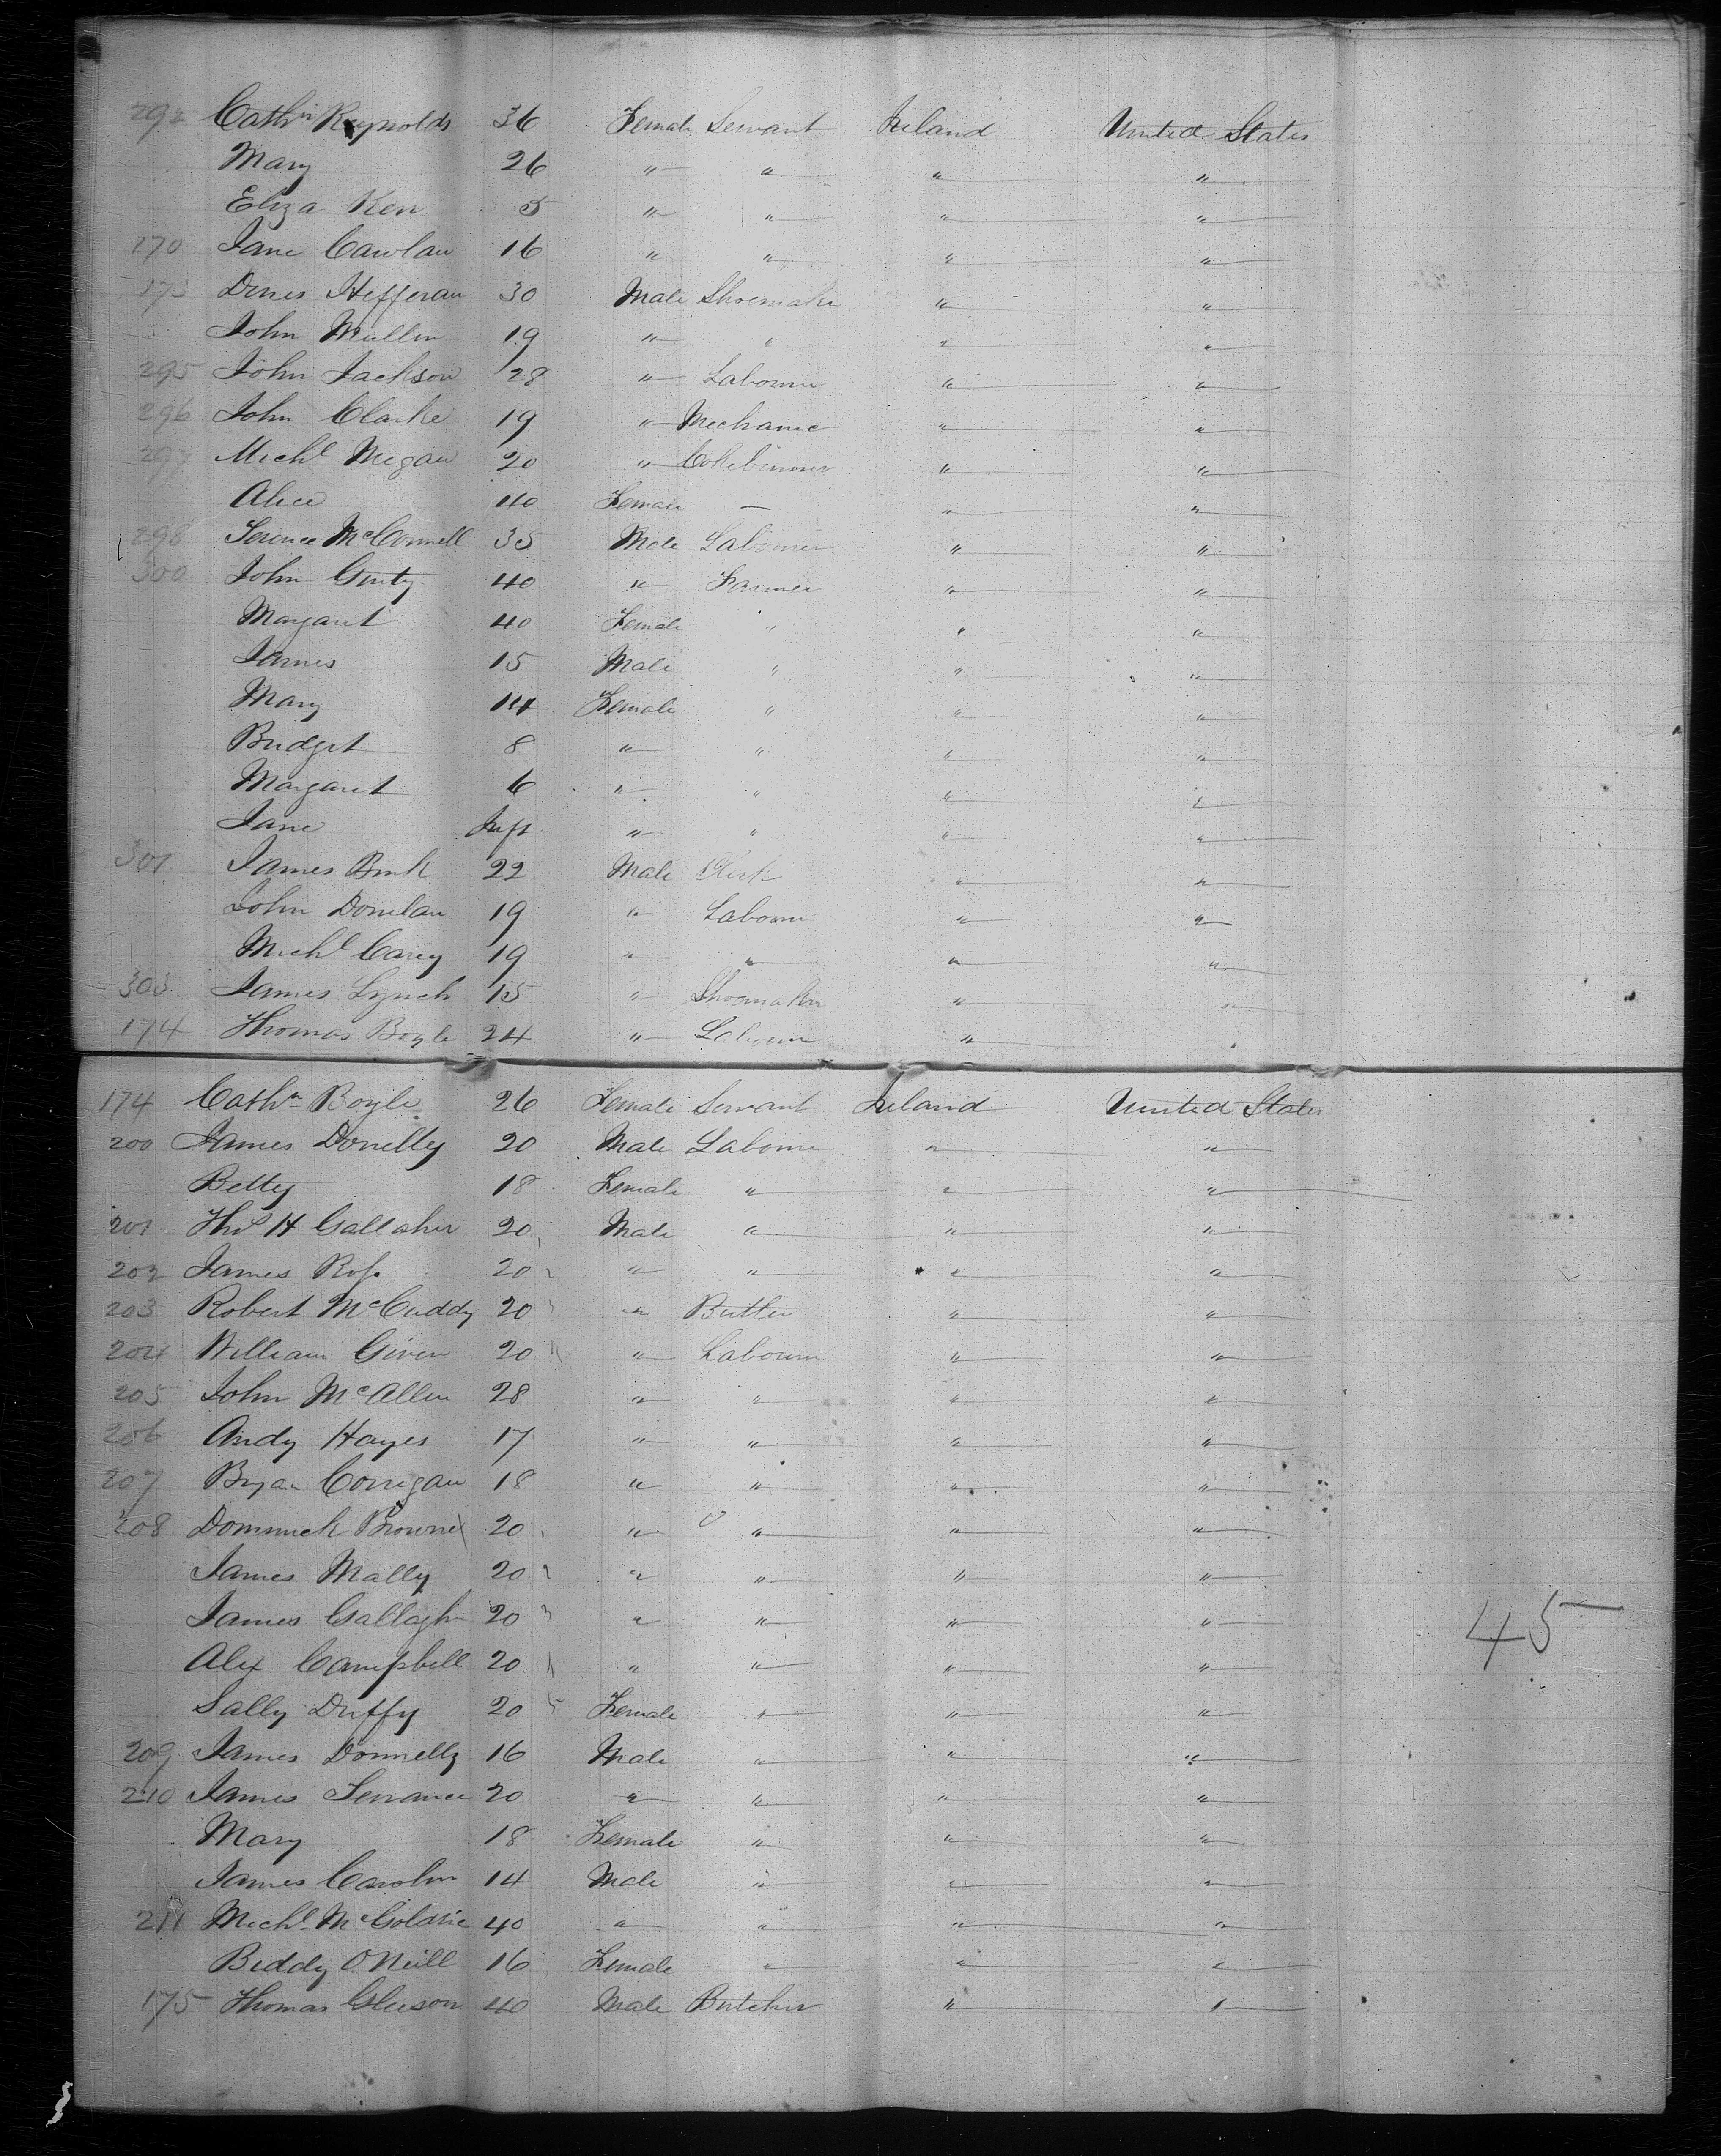 292 Cathn Reynolds 36 Female Servant Ireland United States
Mary 26 " " " "
Eliza Kerr 5 " " " "
170 Jane Cawlan 16 " " " "
173 Denis Hefferan 30 Male Shoemaker " "
John Mullen 19 " " " "
295 John Jackson 28 " Labourer " "
296 John Clarke 19 " Mechanic " "
297 Michl Megan 20 " " "
Alice 40 Female — " "
298 Terence McConnell 35 Male Labourer " "
300 John Ginty 40 " Farmer " "
Margaret 40 Female " " "
James 15 Male " " "
Mary 14 Female " " "
Bridget 8 " " " "
Margaret 6 " " " "
Jane Inft " " " "
301 James 22 Male Clerk " "
John Donelan 19 " Labourer " "
Michl Carey 19 " " " "
303 James Lynch 15 " Shoemaker " "
174 Thomas Boyle 24 " Labourer "
174 Cathn Boyle 26 Female Servant Ireland United States
200 James Donelly 20 Male Labourer " "
Betty 18 Female " " "
201 Thos H Gallaher 20 Male " " "
202 James Ross 20 2 " " " "
203 Robert McCuddy 20 3 " Butler " "
204 William Given 20 4 " Labourer " "
205 John McAllen 28 " " " "
206 Andy Hayes 17 " " " "
207 Bryan Corrigan 18 " " " "
208 Dominick Browne 20 " " " "
James Mally 20 2 " " " "
James Gallagher 20 3 " " " "
Alex Campbell 20 4 " " " "
45
Sally Duffy 20 5 Female " " "
209 James Donnelly 16 Male " " "
210 James Terrance 20 " " " "
Mary 18 Female " " "
James Carolin 14 Male " " "
211 Michl McGoldric 40 " " " "
Biddy O'Neill 16 Female " " "
175 Thomas Gleeson 40 Male Butcher " "